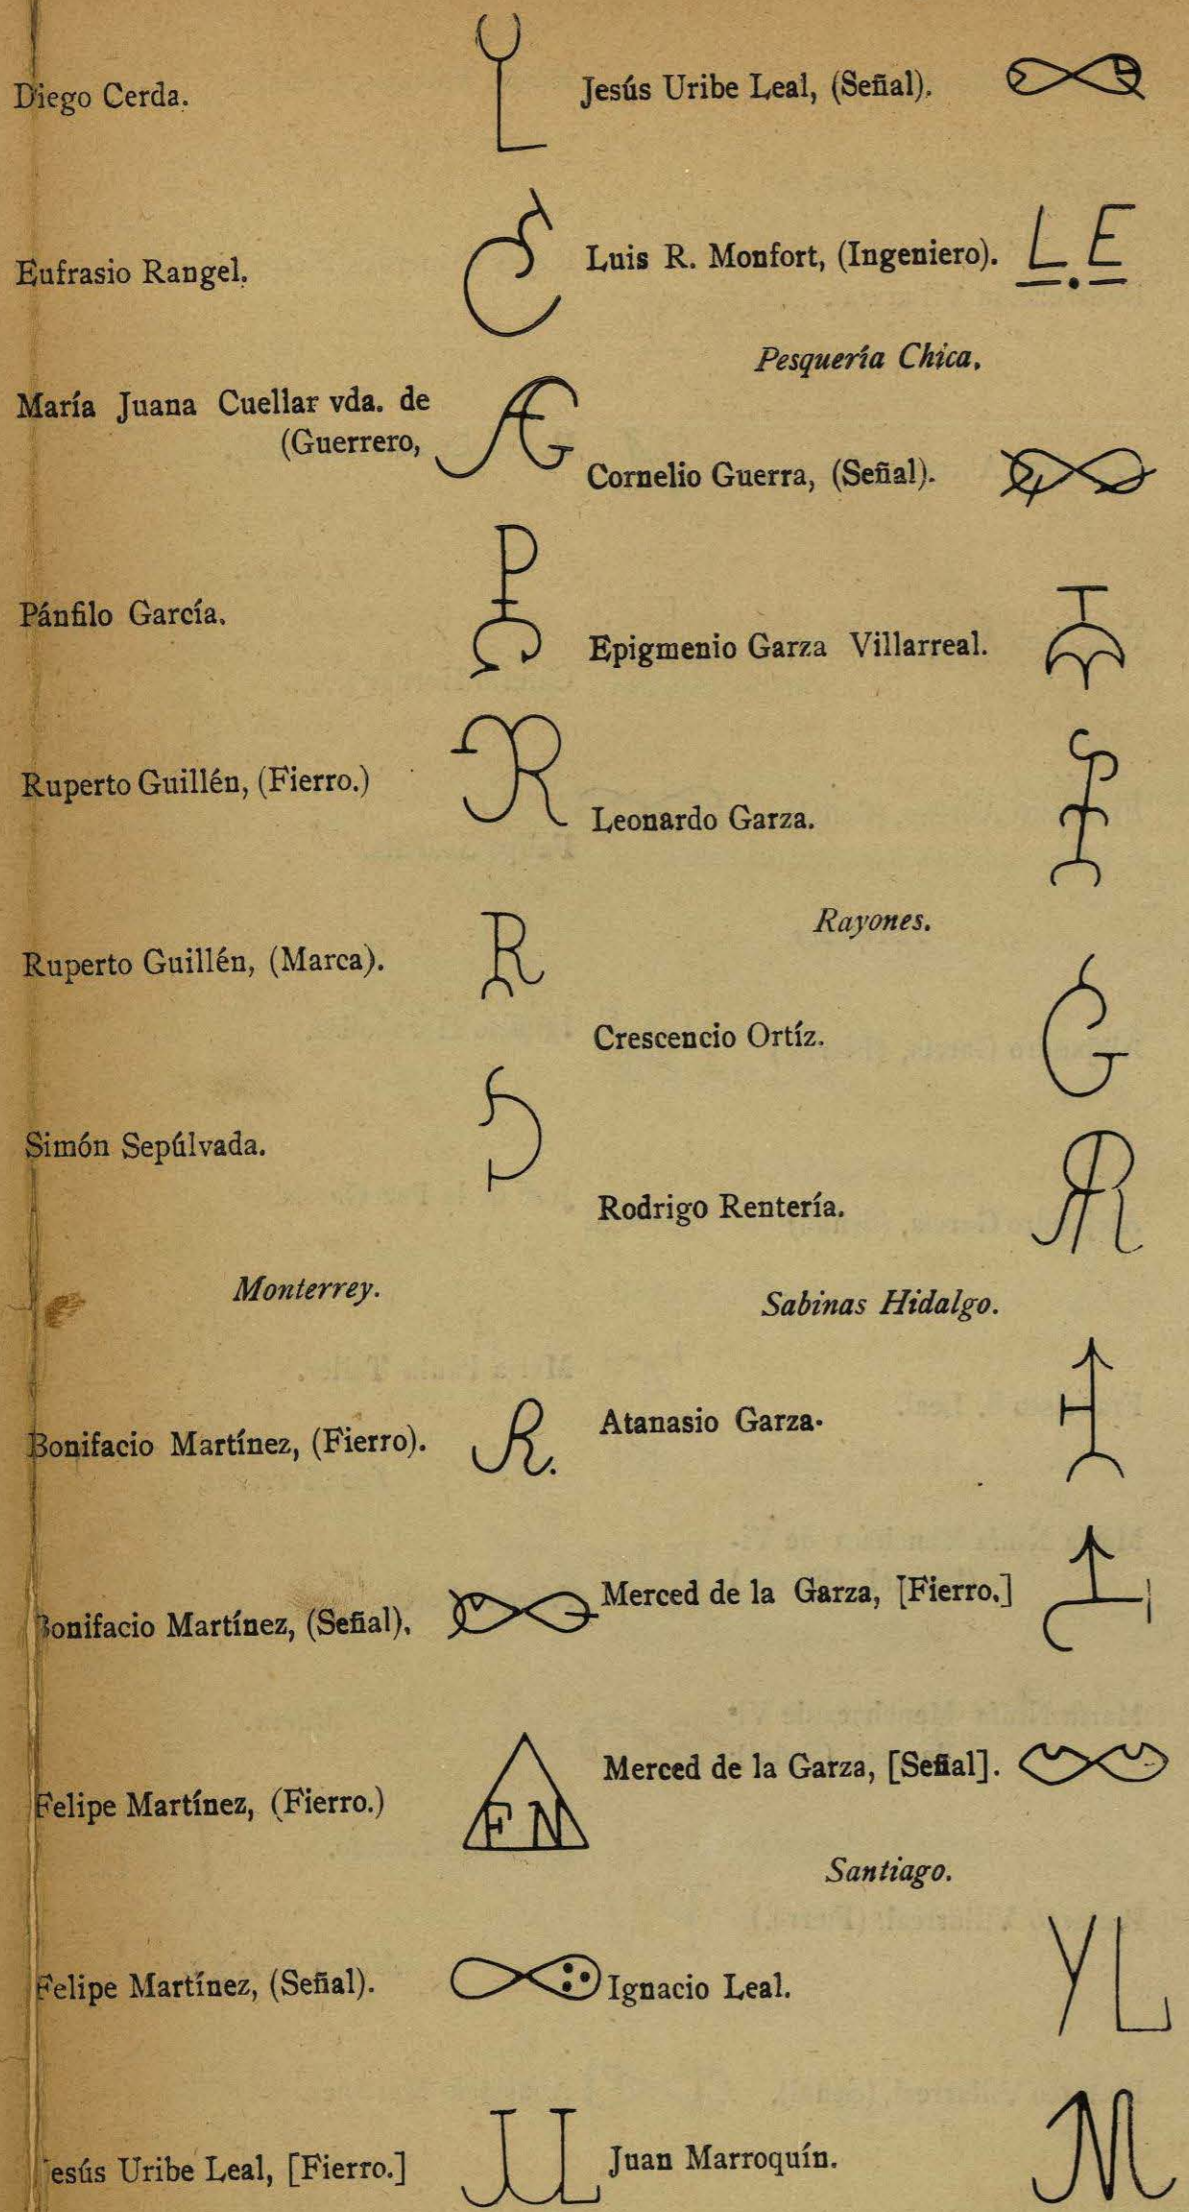 Diego Cerda.
Eufrasio Rangel.
María Juana Cuellar vda. de
(Guerrero,
Pánfilo García.
Ruperto Guillén, (Fierro.)
Ruperto Guillén, (Marca).
Simón Sepúlvada.
Monterrey.
Bonifacio Martínez, (Fierro).
R.
Bonifacio Martínez, (Señal).
Felipe Martínez, (Fierro.)
F N
Felipe Martínez, (Señal).
esús Uribe Leal, [Fierro.]
Jesús Uribe Leal, (Señal).
Luis R. Monfort, (Ingeniero).
L.E
Pesquería Chica.
Cornelio Guerra, (Señal).
Epigmenio Garza Villarreal.
Leonardo Garza.
Rayones.
Crescencio Ortíz.
Rodrigo Rentería.
Sabinas Hidalgo.
Atanasio Garza.
Merced de la Garza, [Fierro.]
Merced de la Garza, [Señal].
Santiago.
Ignacio Leal.
YL
Juan Marroquín.
M